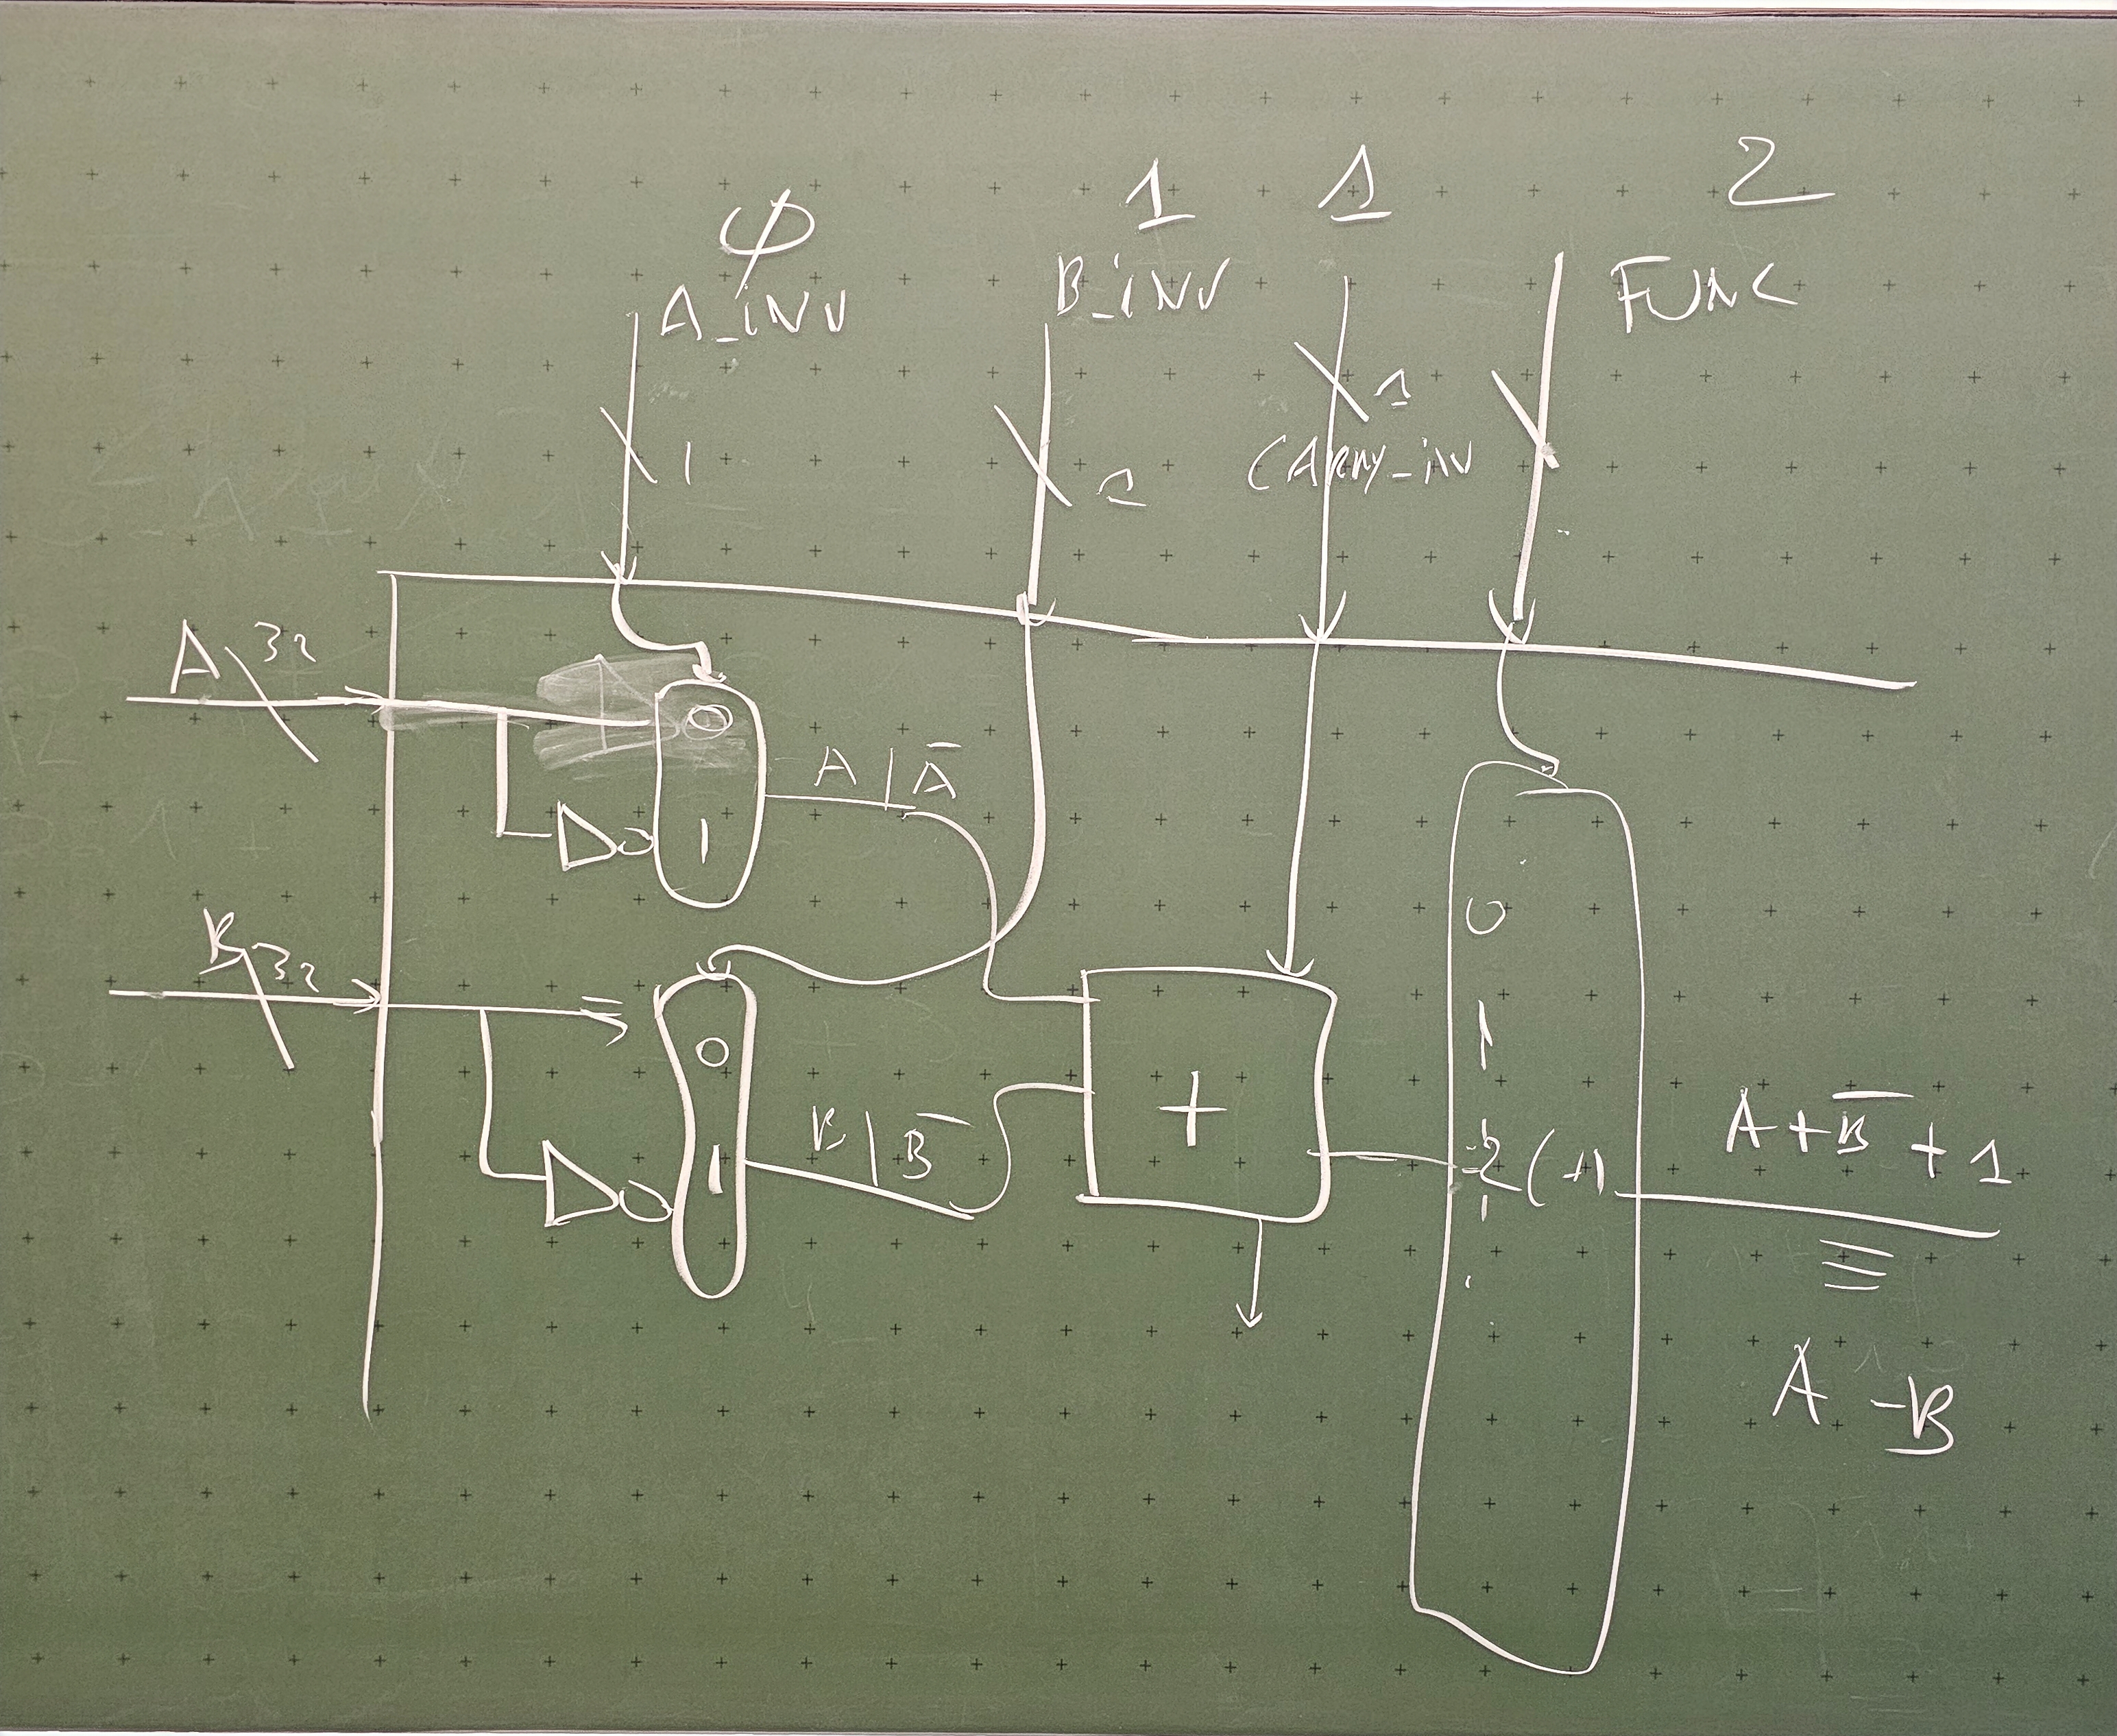 0 1 1 2
A_INV B_INV FUNC
1 1 1
CARRY_IN
A 32
0
A | Ā
1
B 32
0
0
1
1
B | B̄
+
2 (+)
A + B̄ + 1
≡
A - B